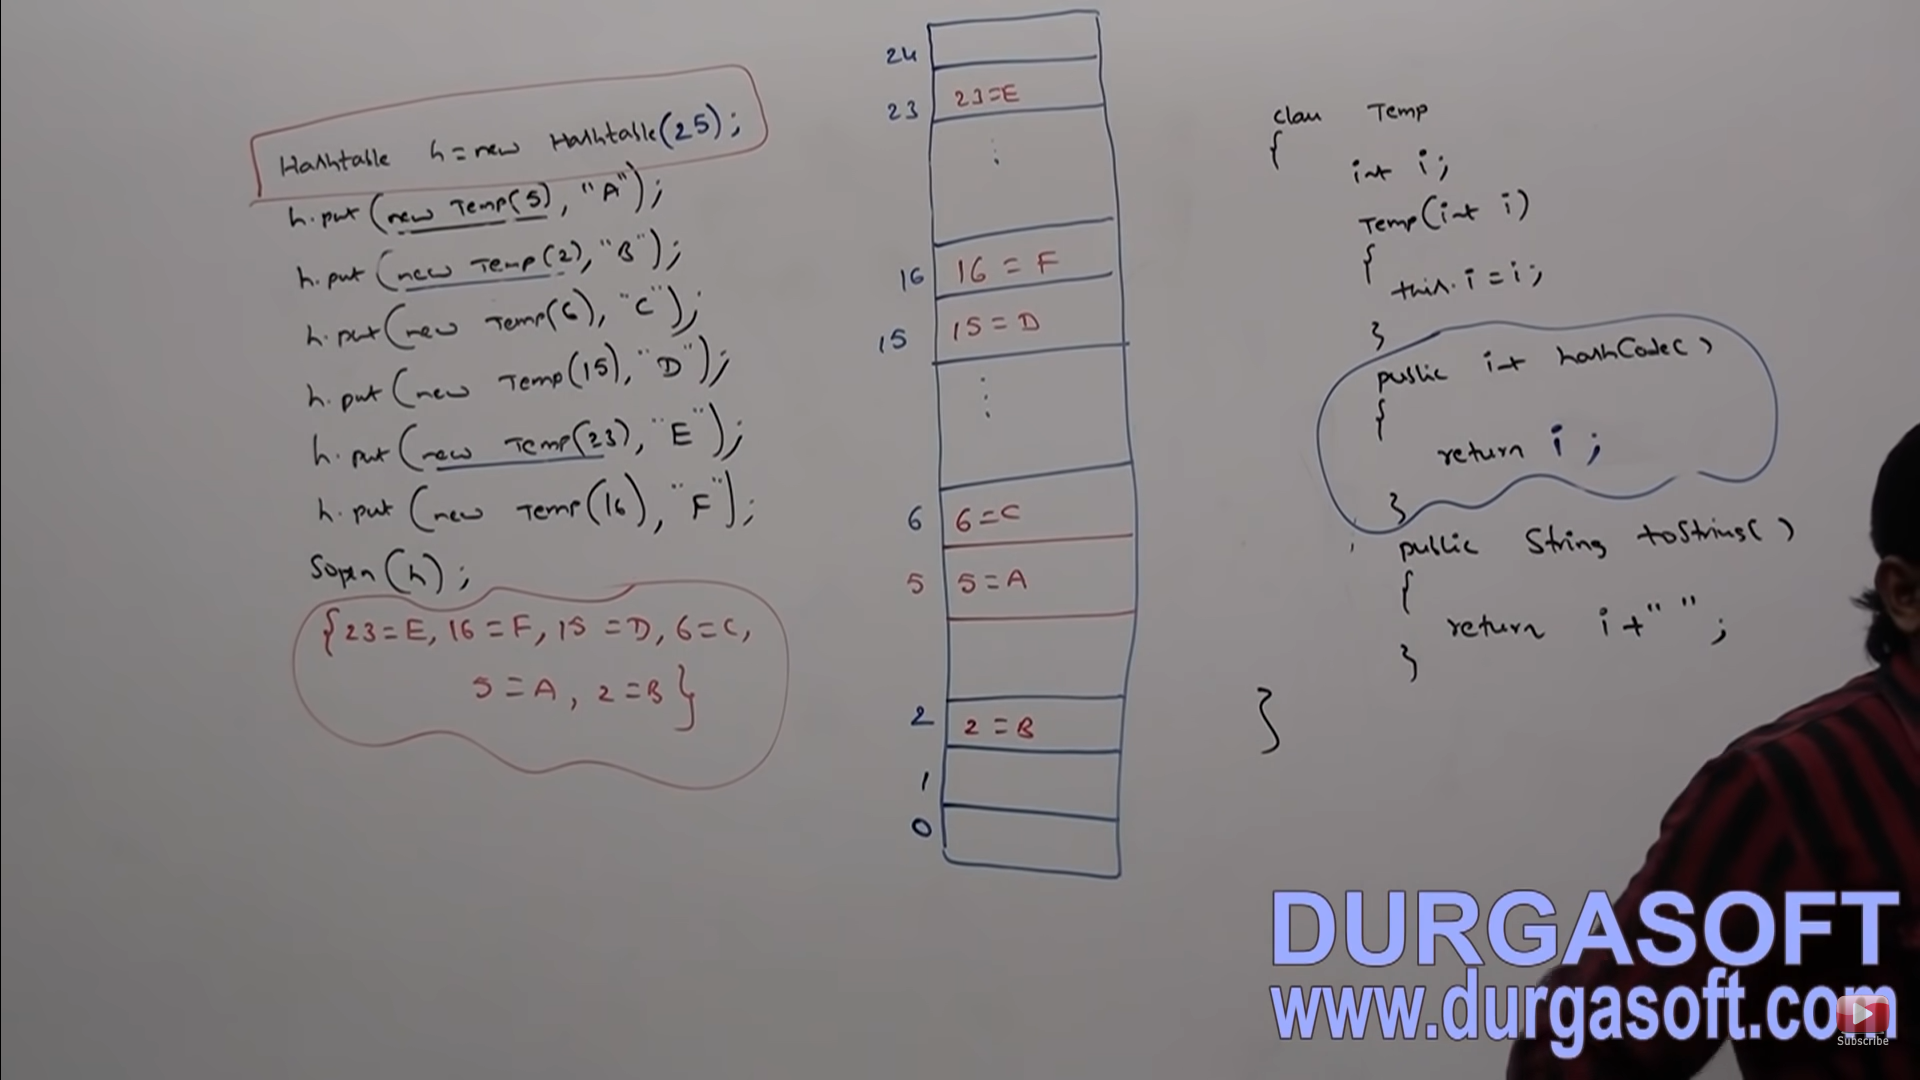 Hashtable h = new Hashtable(25);
h.put(new Temp(5), "A");
h.put(new Temp(2), "B");
h.put(new Temp(6), "C");
h.put(new Temp(15), "D");
h.put(new Temp(23), "E");
h.put(new Temp(16), "F");
Sopln(h);
{23=E, 16=F, 15=D, 6=C,
5=A, 2=B}
24
23 23=E
16 16=F
15 15=D
6 6=C
5 5=A
2 2=B
1
0
class Temp
{
int i;
Temp(int i)
{
this.i=i;
}
public int hashCode()
{
return i;
}
public String toString()
{
return i+"";
}
}
DURGASOFT
www.durgasoft.com
Subscribe